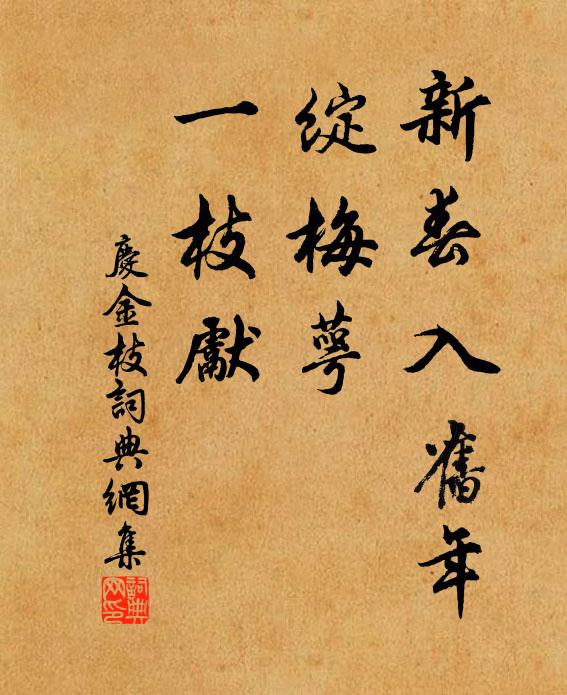 新春入舊年
綻梅萼
一枝獻
慶金枝詞典網集
詞典網印